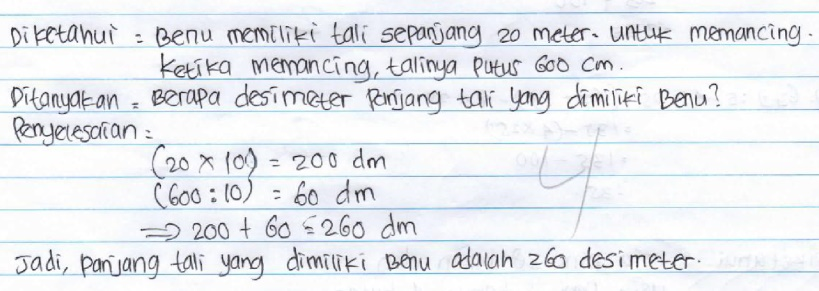 Diketahui = Benu memiliki tali sepanjang 20 meter. untuk memancing.
Ketika memancing, talinya putus 600 cm.
Ditanyakan = Berapa desimeter panjang tali yang dimiliki Benu?
Penyelesaian =
(20 x 10) = 200 dm
(600 : 10) = 60 dm
⇒ 200 + 60 = 260 dm
4
Jadi, panjang tali yang dimiliki Benu adalah 260 desimeter.